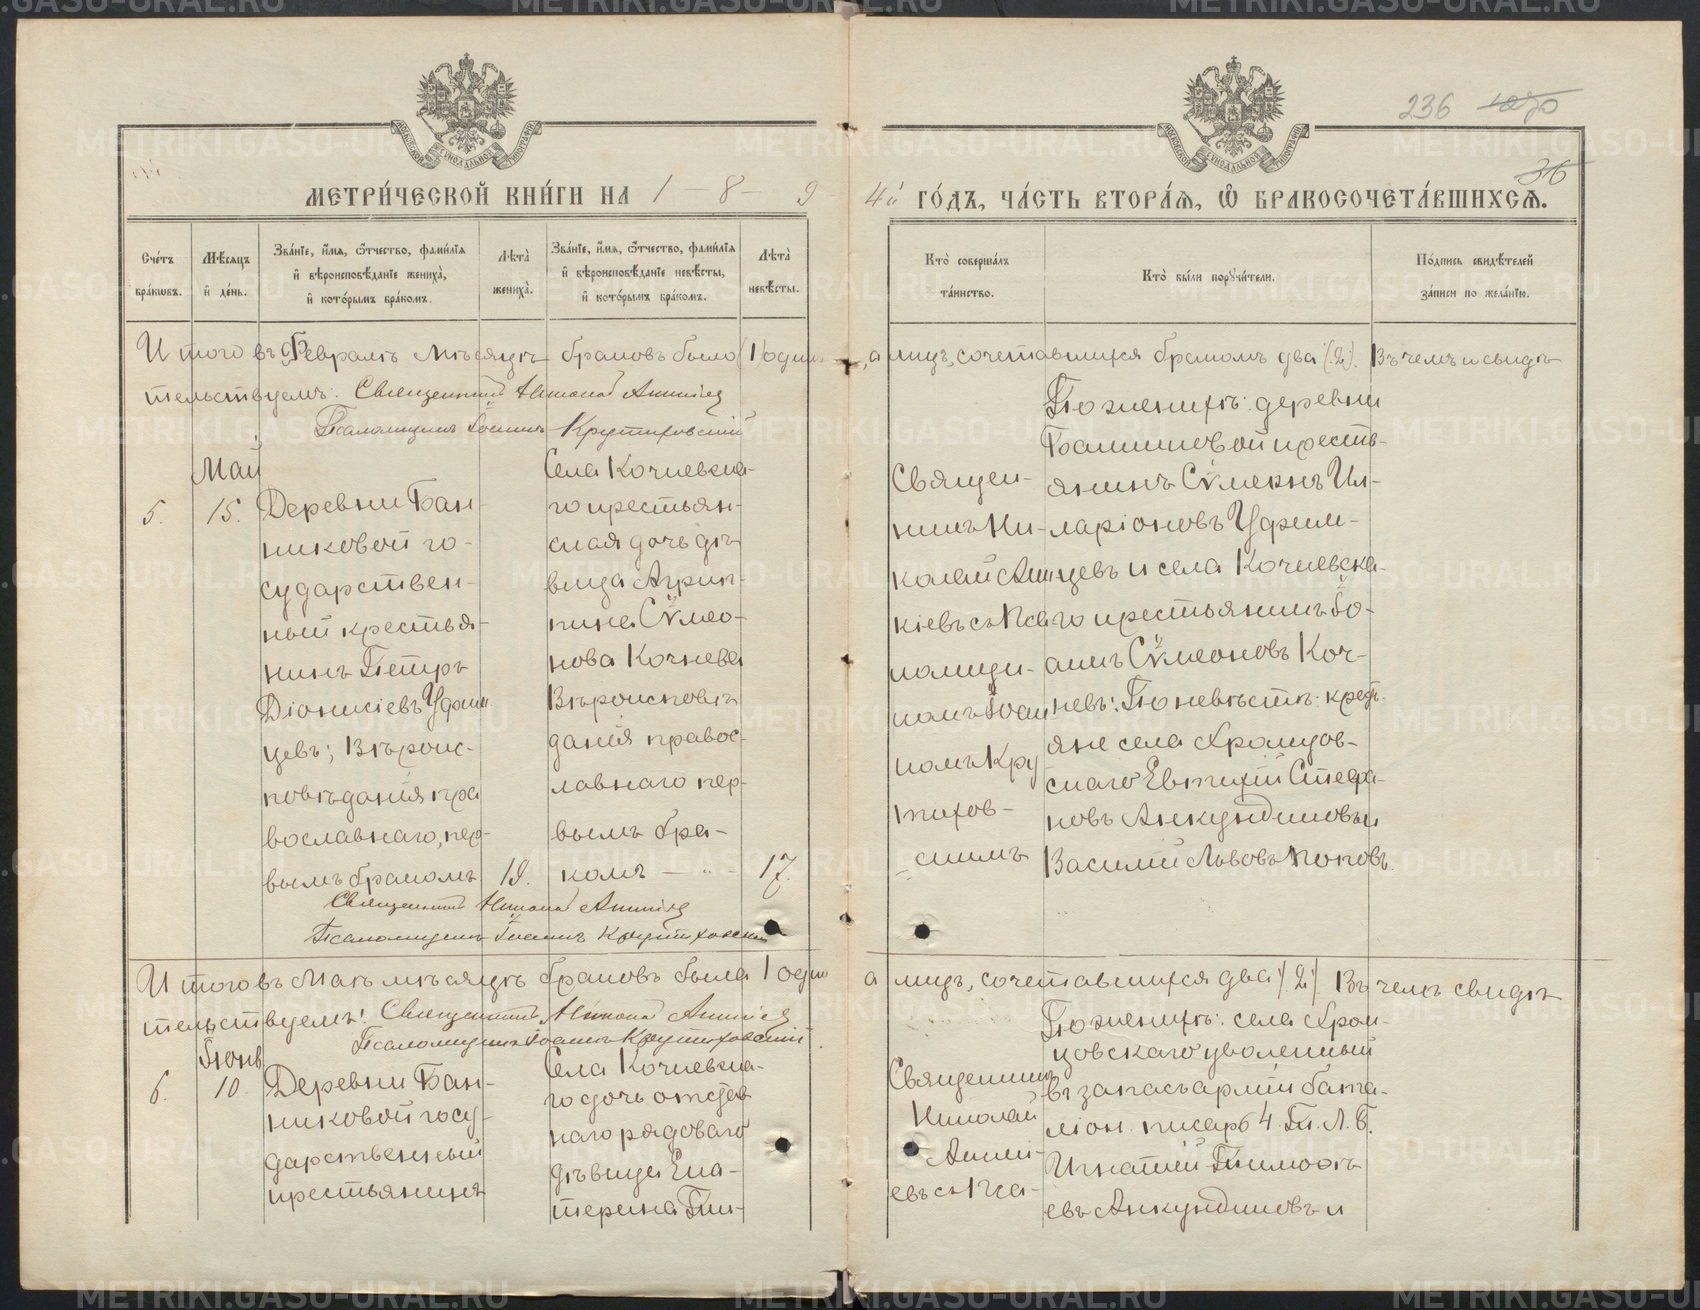 236 1270
36
МЕТРИ́ЧЕСКОЙ КНИ́ГИ НА 1 – 8 – 9 4й ГО́ДЪ, ЧА́СТЬ ВТОРА́Я, Ѡ БРАКОСОЧЕТА́ВШИХСЯ.
Сче́тъ бра́кѡвъ.
Мѣ́сяцъ и҆ де́нь.
Зва́нїе, и҆́мя, ѻ҆́тчество, фами́лїя и҆ вѣроисповѣ́данїе жениха̀, и҆ кото́рымъ бра́комъ.
Лѣта̀ жениха̀.
Зва́нїе, и҆́мя, ѻ҆́тчество, фами́лїя и҆ вѣроисповѣ́данїе невѣ́сты, и҆ кото́рымъ бра́комъ.
Лѣта̀ невѣ́сты.
Кто̀ соверша́лъ та́инство.
Кто̀ бы́ли порꙋчи́тели.
По́дпись свидѣ́телей за́писи по жела́нїю.
Итого въ Февралѣ мѣсяцѣ браковъ было (1) одинъ, а лицъ, сочетавшихся бракомъ два (2). Въ чемъ и свидѣ-
тельствуемъ: Священникъ Николай
Псаломщикъ Іоаннъ Крутиховскій
Май
5.
15.
Деревни Бан-
никовой го-
сударствен-
ный крестья-
нинъ Петръ
Діонисіевъ Уфим
цевъ; Вѣроис-
повѣданія пра
вославнаго, пер-
вымъ бракомъ
19.
Села Кочневска-
го крестьян-
ская дочь дѣ-
вица Агрип-
пина Сѵмео-
нова Кочнева
Вѣроисповѣ
данія правос-
лавнаго пер-
вымъ бра-
комъ – " –
17.
Священ-
никъ Ни-
колай
кіевъ съ Пса
ломщи-
комъ Іоан
номъ Кру
тихов-
скимъ
По женихѣ: деревни
Банниковой кресть-
янинъ Сѵмеонъ Ил-
ларіоновъ Уфим-
цевъ и села Кочневска-
го крестьянинъ Іо-
аннъ Сѵмеоновъ Коч-
невъ: По невѣстѣ: крест-
яне села Храмцов-
скаго Евтихій Стефа-
новъ Анкундиновъ и
Василій Львовъ Поповъ.
Священникъ Николай
Псаломщикъ Іоаннъ Крутиховскій
Итого въ Маѣ мѣсяцѣ браковъ было 1 одинъ а лицъ, сочетавшихся два (2) Въ чемъ свидѣ
тельствуемъ: Священникъ Николай
Псаломщикъ Іоаннъ Крутиховскій
Іюнь
6.
10.
Деревни Бан-
никовой госу-
дарственный
крестьянинъ
Села Кочневска-
го дочь отстав
наго рядоваго
дѣвица Ека-
терина
Священникъ
Николай
евъ съ Пса-
По женихѣ: села Храм-
цовскаго уволенный
въ запасъ арміи бата-
ліон. писарь 4. П. Л. Б.
Игнатій Тимофѣ
евъ Анкундиновъ и
METRIKI.GASO-URAL.RU